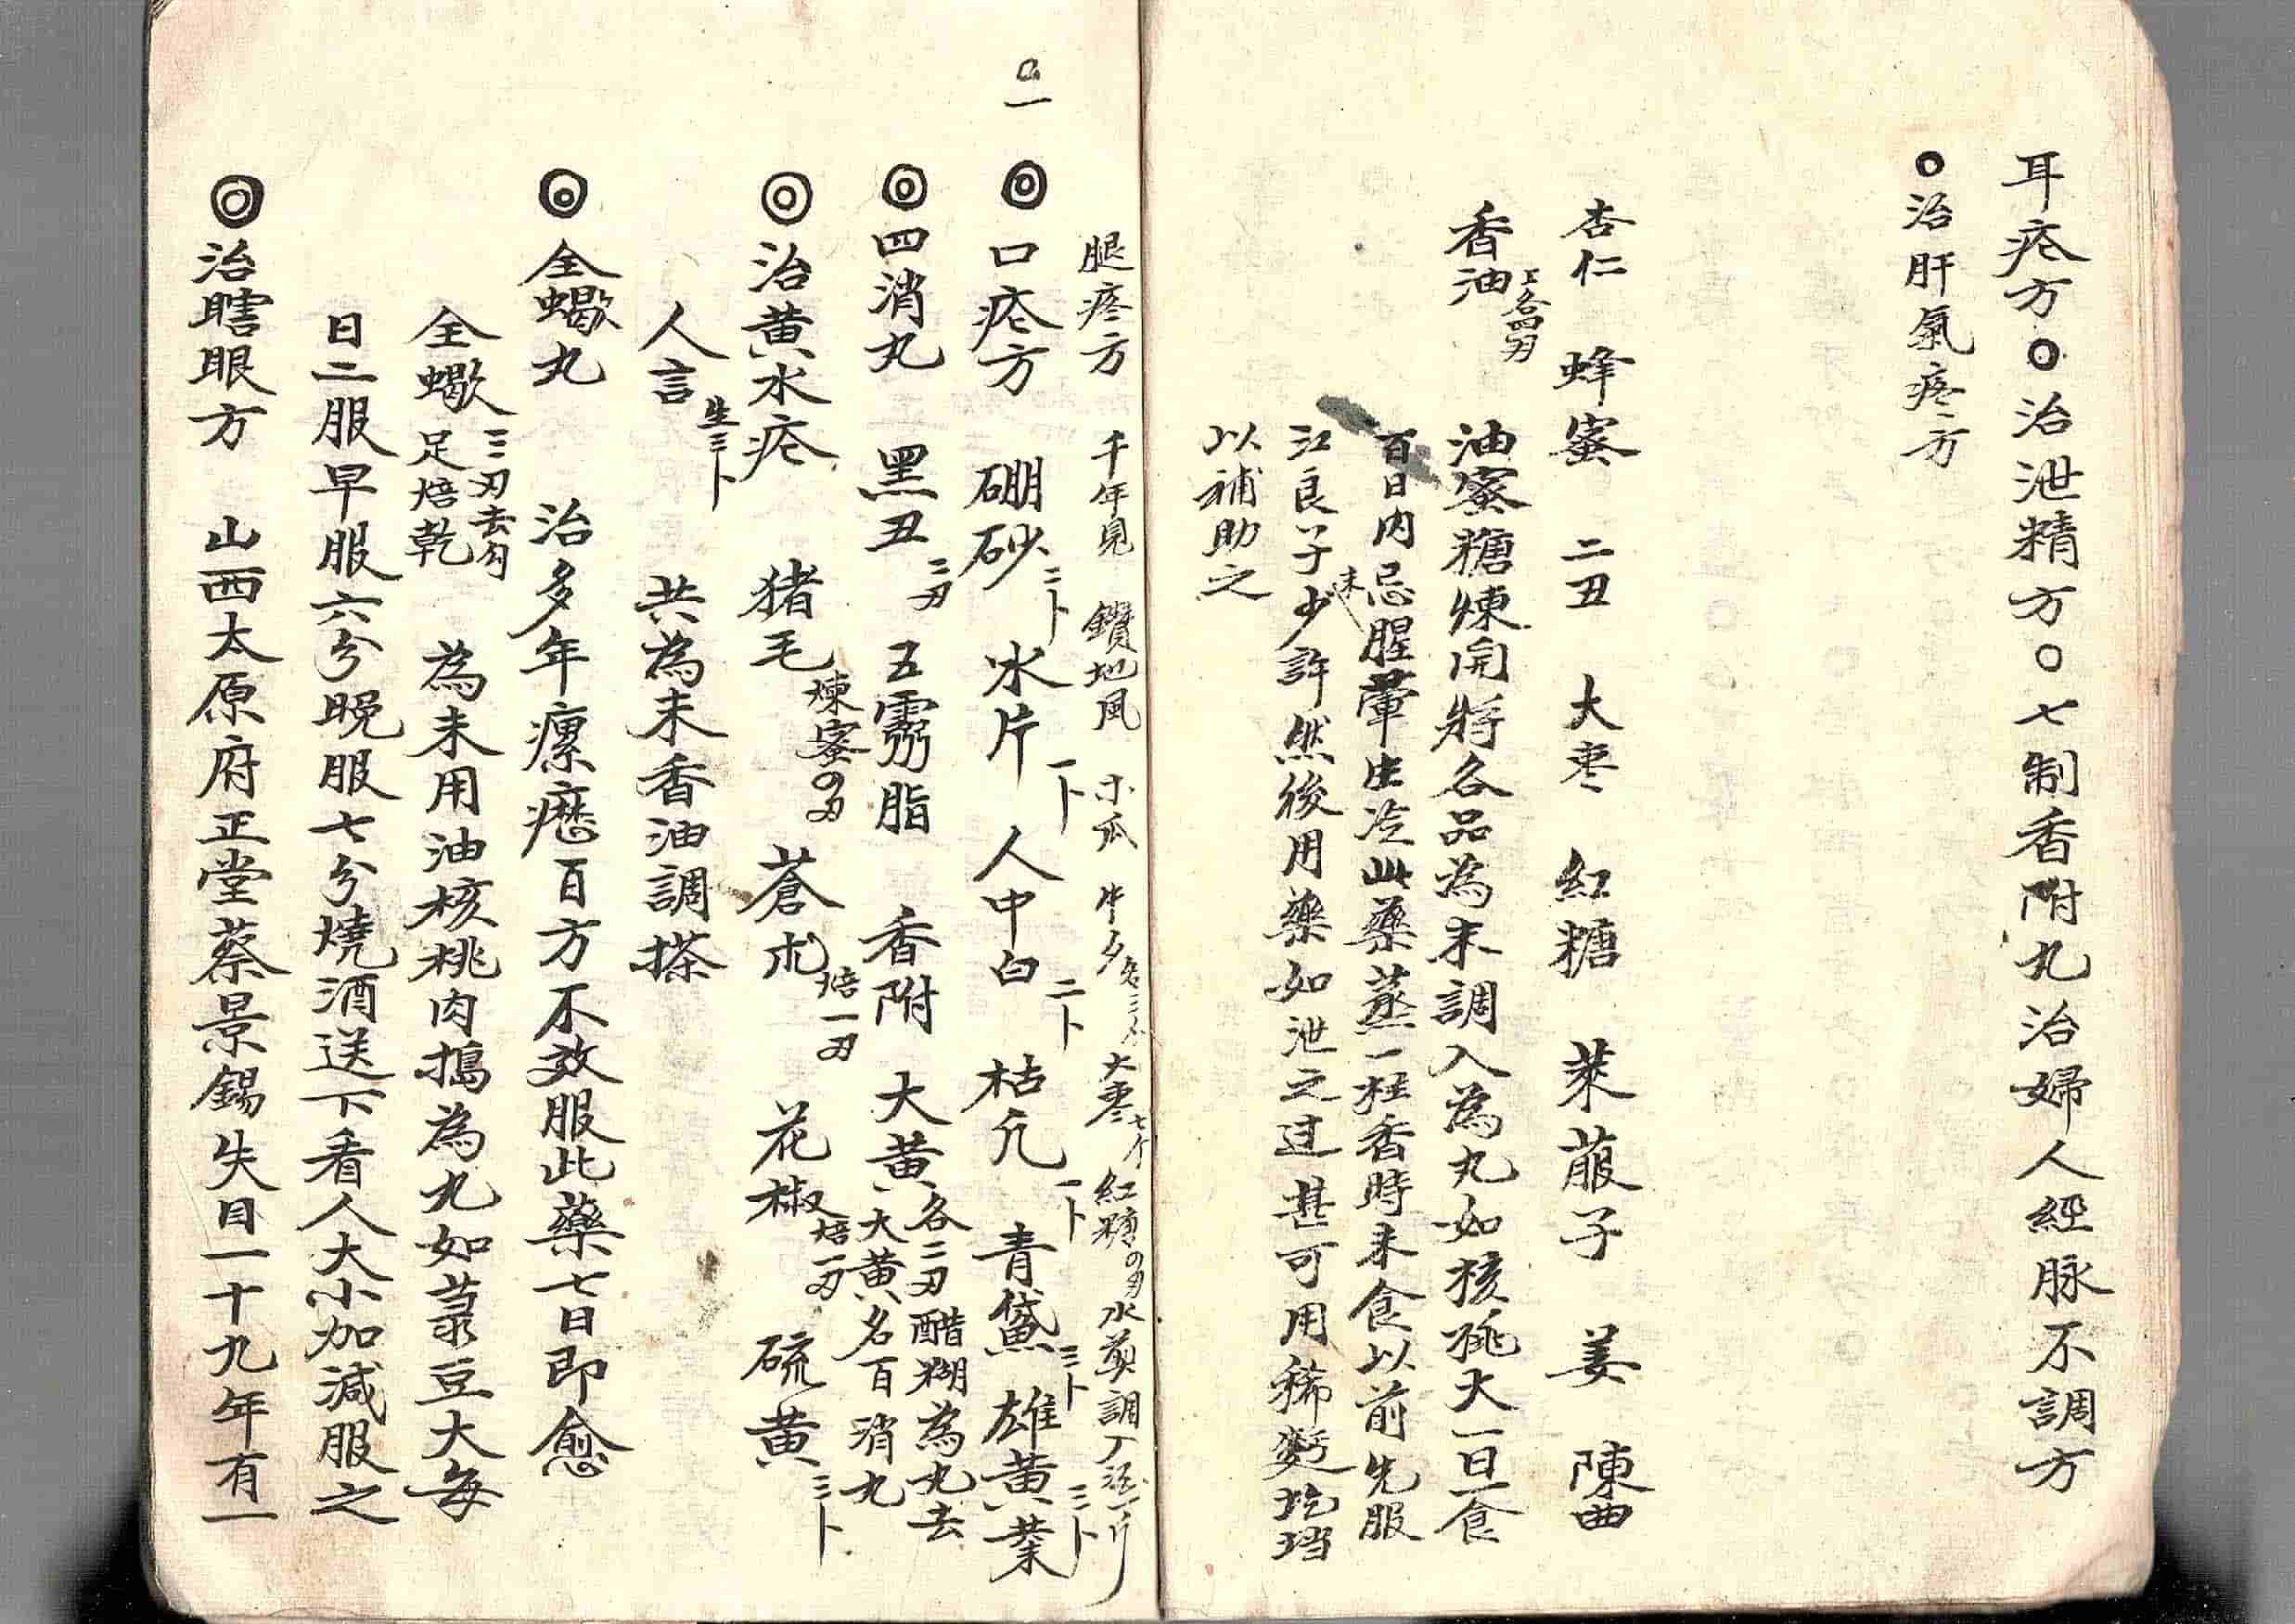 耳疮方○治泄精方○七制香附丸治婦人經脉不調方
○治肝氣疼方
杏仁　蜂蜜　二丑　大枣　紅糖　萊菔子　姜　陳曲
香油　各四刃
油蜜糖煉開將各品為末調入為丸如核桃大一日一食
百日内忌腥葷生冷此藥蒸一柱香時未食以前先服
江良子末少許然後用藥如泄之过甚可用稀麪圪垱
以補助之
腿疼方　千年見　鑽地風　木瓜　牛夕　大枣七个　紅糖四刃　水煎調
◎口疮方　硼砂二卜　氷片一卜　人中白二卜　枯凡一卜　青黛三卜　雄黄三卜
◎四消丸　黑丑二刃　五灵脂　香附　大黄各二刃醋糊為丸去大黄名百消丸
◎治黄水疮　猪毛　煉蜜四刃　蒼朮焙一刃　花椒焙一刃　硫黄三卜
人言生三卜　共為末香油調搽
◎全蝎丸　治多年瘰癧百方不效服此藥七日即愈
全蝎三刃去勾足焙乾　為末用油核桃肉搗為丸如菉豆大每
日二服早服六兮晚服七兮燒酒送下看人大小加減服之
◎治瞎眼方　山西太原府正堂蔡景錫失目一十九年有一